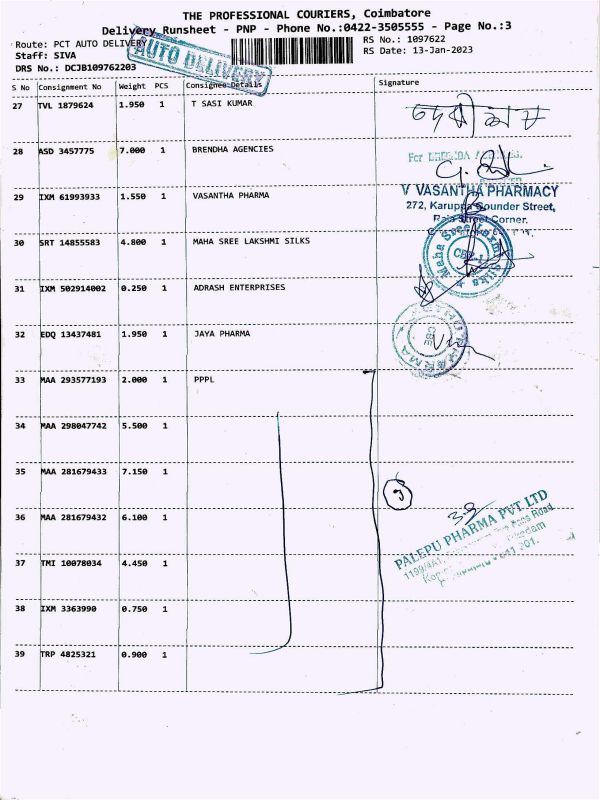 THE PROFESSIONAL COURIERS, Coimbatore
Delivery Runsheet - PNP - Phone No.:0422-3505555 - Page No.:3
Route: PCT AUTO DELIVERY
AUTO DELIVERY
RS No.: 1097622
Staff: SIVA
RS Date: 13-Jan-2023
DRS No.: DCJB109762203
S No Consignment No Weight PCS Consignee Details Signature
27 TVL 1879624 1.950 1 T SASI KUMAR
28 ASD 3457775 7.000 1 BRENDHA AGENCIES
29 IXM 61993933 1.550 1 VASANTHA PHARMA
V VASANTHA PHARMACY
272, Karuppa Gounder Street,
Raja Street Corner.
30 SRT 14855583 4.800 1 MAHA SREE LAKSHMI SILKS
31 IXM 502914002 0.250 1 ADRASH ENTERPRISES
32 EDQ 13437481 1.950 1 JAYA PHARMA
33 MAA 293577193 2.000 1 PPPL
34 MAA 298047742 5.500 1
35 MAA 281679433 7.150 1
36 MAA 281679432 6.100 1
PALEPU PHARMA PVT LTD
37 TMI 10078034 4.450 1
38 IXM 3363990 0.750 1
39 TRP 4825321 0.900 1